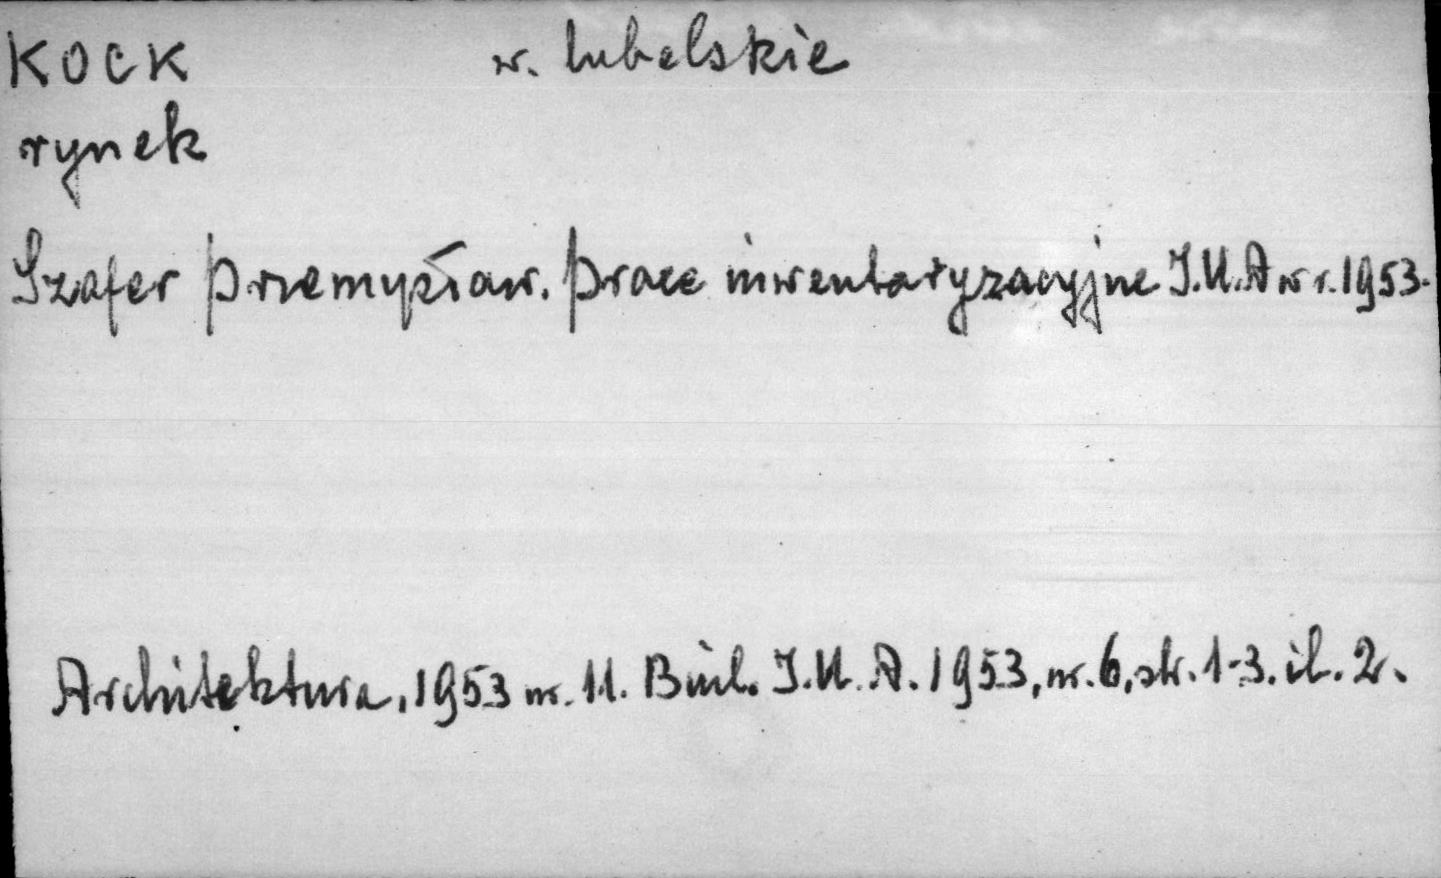 KOCK w. lubelskie
rynek
Szafer Przemysław. Prace inwentaryzacyjne I.U.A w r. 1953.
Architektura, 1953 nr. 11. Biul. I.U.A. 1953, nr. 6, str. 1-3. il. 2.